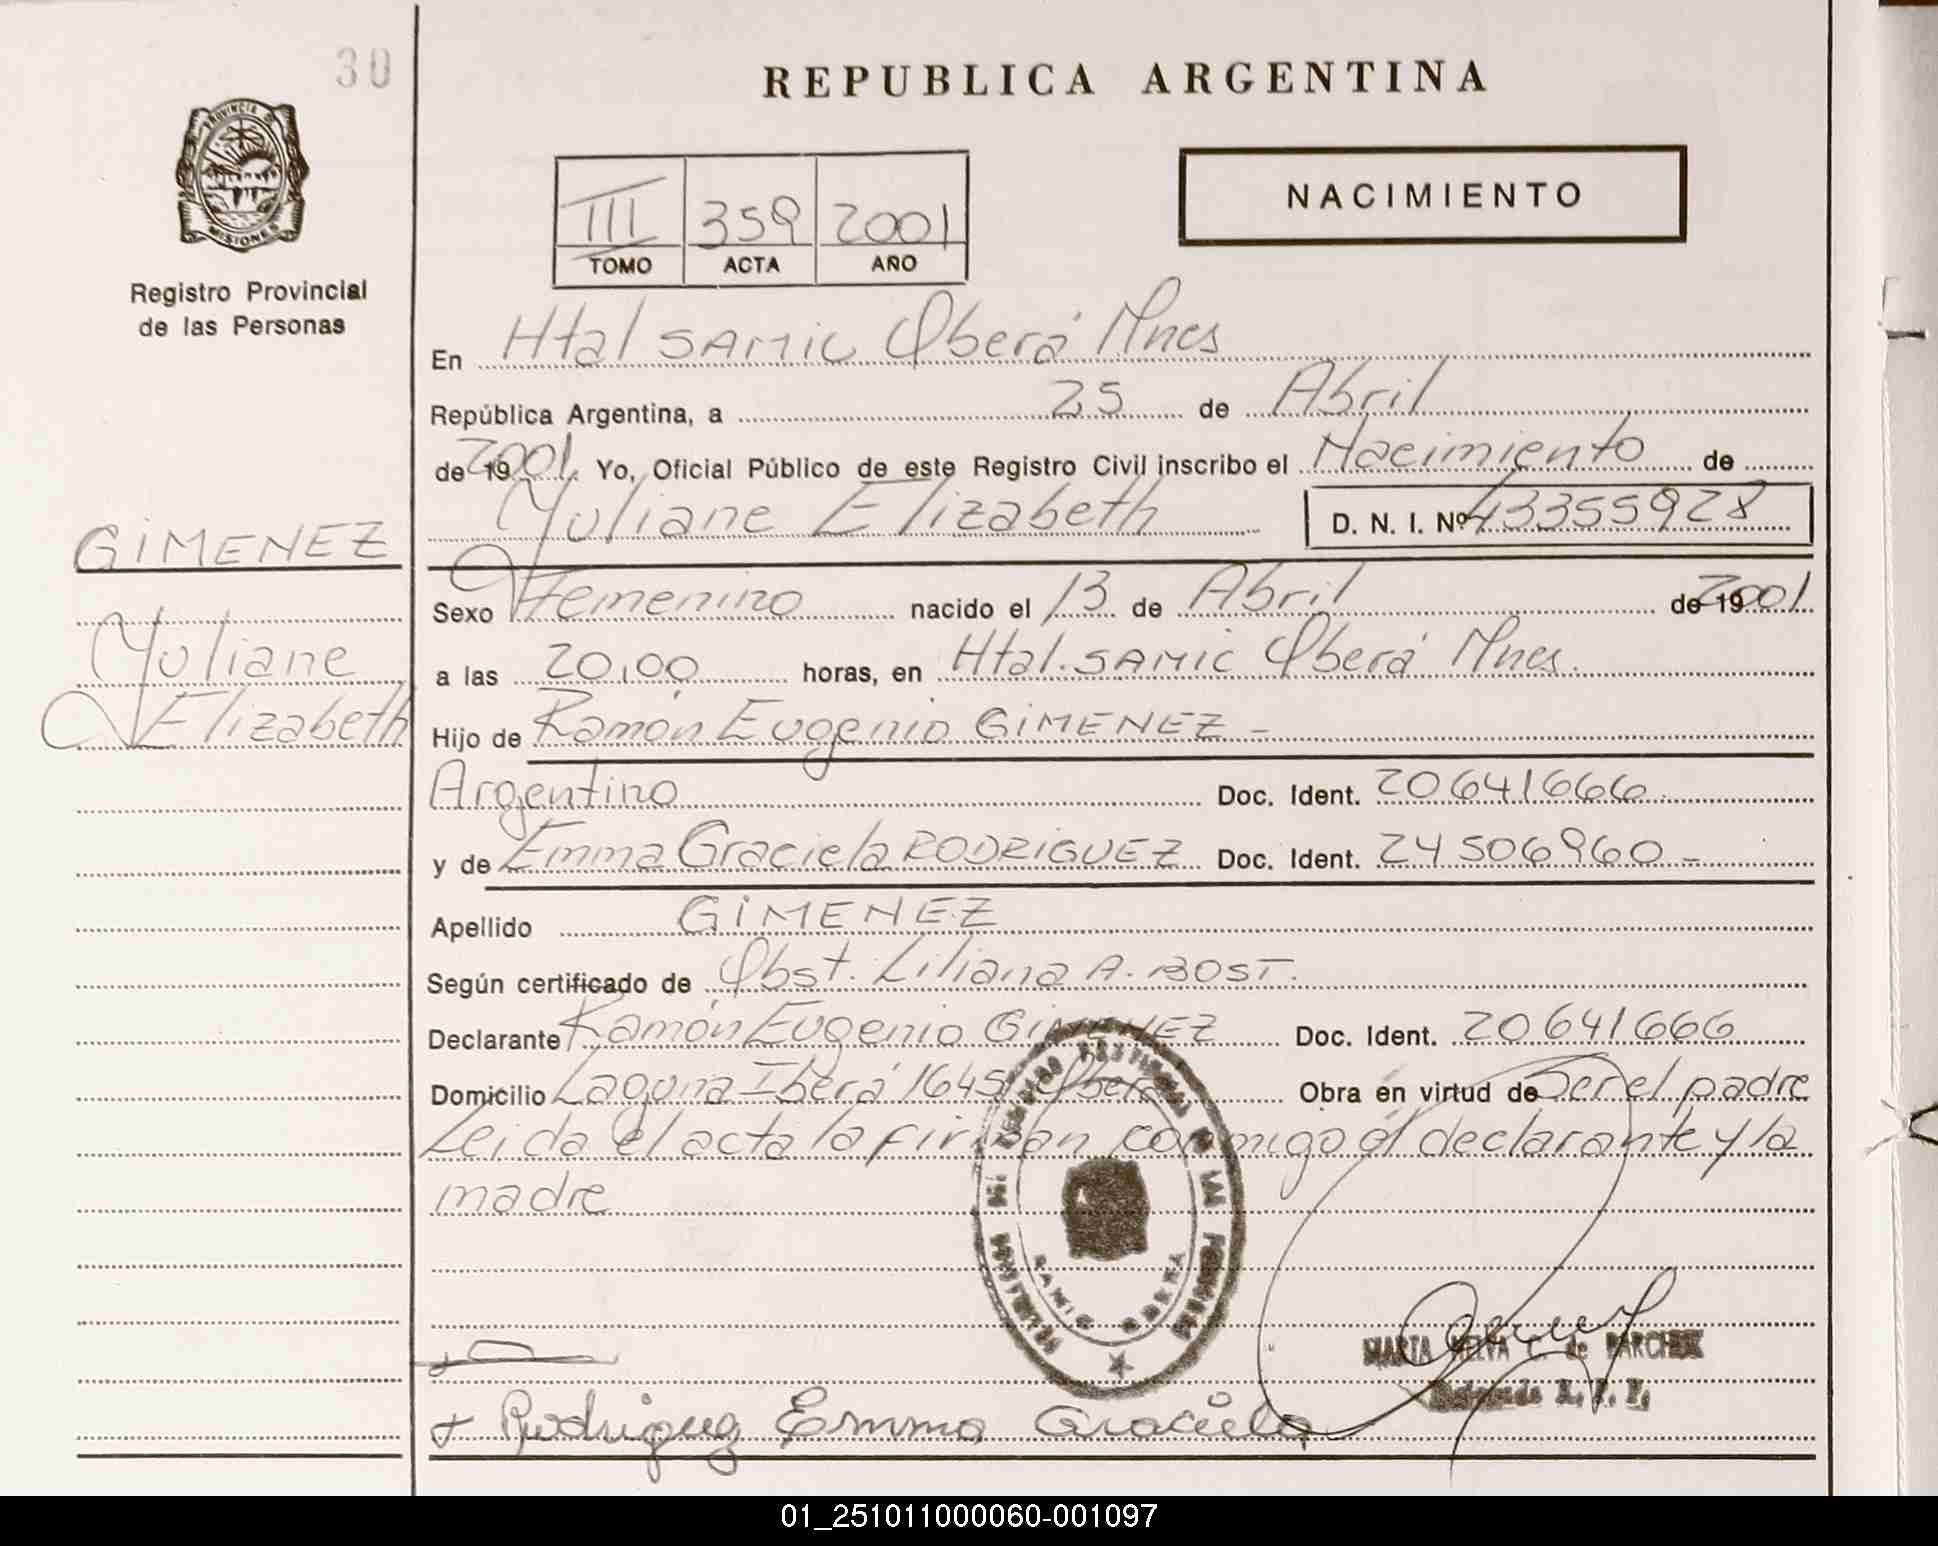 30
REPUBLICA ARGENTINA
PROVINCIA DE
MISIONES
Registro Provincial
de las Personas
NACIMIENTO
III 359 2001
TOMO ACTA AÑO
En Htal SAMIC Oberá Mnes
República Argentina, a 25 de Abril
de 19 2001. Yo, Oficial Público de este Registro Civil inscribo el Nacimiento de
Yuliane Elizabeth D. N. I. Nº 43355928
GIMENEZ
Yuliane
Elizabeth
Sexo Femenino nacido el 13 de Abril de 19 2001
a las 20,00 horas, en Htal. SAMIC Oberá Mnes.
Hijo de Ramón Eugenio GIMENEZ -
Argentino Doc. Ident. 20641666
y de Emma Graciela RODRIGUEZ Doc. Ident. 24506960 -
Apellido GIMENEZ
Según certificado de Obst. Liliana A. BOST.
Declarante Ramón Eugenio GIMENEZ Doc. Ident. 20641666
Domicilio Laguna Iberá 1645 Oberá Obra en virtud de Ser el padre
Leida el acta la firman conmigo el declarante y la
madre
MARTA C. de
R. P. P.
+ Rodriguez Emma Graciela
01_251011000060-001097